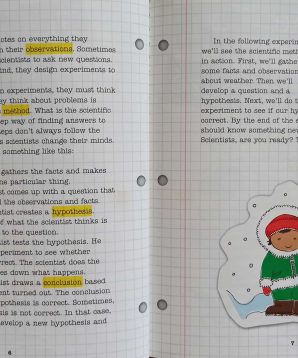 otes on everything they
n their observations. Sometimes
scientists to ask new questions.
ind, they design experiments to
n experiments, they must think
ey think about problems is
method. What is the scientific
ep way of finding answers to
teps don't always follow the
s scientists change their minds.
something like this:
gathers the facts and makes
ne particular thing.
st comes up with a question that
d the observations and facts.
ntist creates a hypothesis.
of what the scientist thinks is
to the question.
tist tests the hypothesis. He
xperiment to see whether
orrect. The scientist does the
es down what happens.
ist draws a conclusion based
ent turned out. The conclusion
pothesis is correct. Sometimes,
sis is not correct. In that case,
evelop a new hypothesis and
6
In the following experim
we'll see the scientific meth
in action. First, we'll gathe
some facts and observation
about weather. Then we'll
develop a question and a
hypothesis. Next, we'll do t
experiment to see if our hy
correct. By the end of the e
should know something ne
Scientists, are you ready? T
7